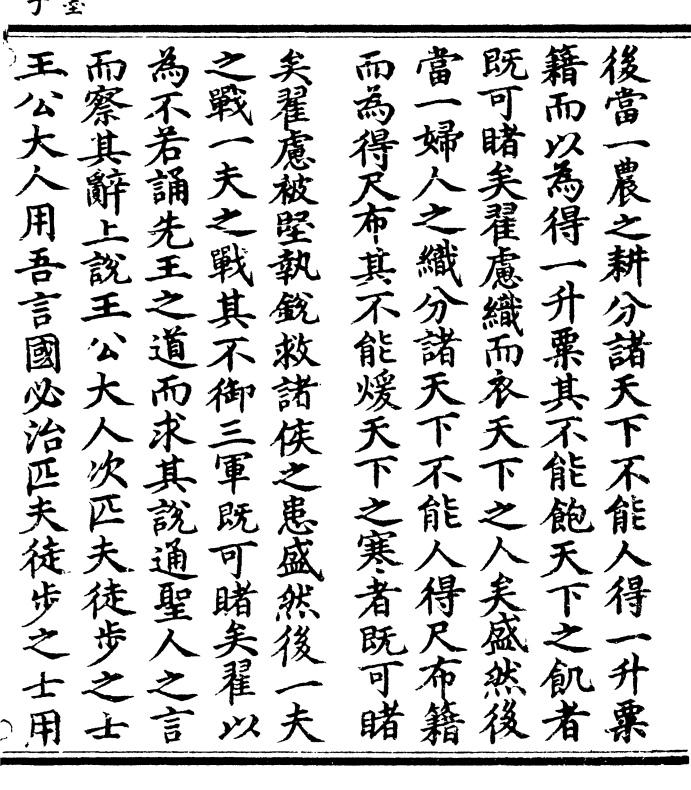 後當一農之耕分諸天下不能人得一升粟
籍而以為得一升粟其不能飽天下之飢者
既可睹矣翟慮織而衣天下之人矣盛然後
當一婦人之織分諸天下不能人得尺布籍
而為得尺布其不能煖天下之寒者既可睹
矣翟慮被堅執銳救諸侯之患盛然後一夫
之戰一夫之戰其不御三軍既可睹矣翟以
為不若誦先王之道而求其說通聖人之言
而察其辭上說王公大人次匹夫徒步之士
王公大人用吾言國必治匹夫徒步之士用